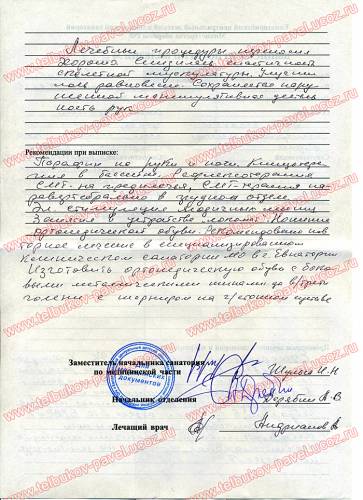 Лечебные процедуры перенося
хорошо. Снизилась спастичность
скелетной мускулатуры. Улучши
лось равновесие. Сохраняется нару-
шенной манипулятивная деятель
ность рук
Рекомендации при выписке:
Парафин на руки и ноги. Кинезотера-
пия в бассейне. Рефлексотерапия
СМТ-на предплечья, СМТ-терапия па-
равертебрально в грудном отделе
Эл. стимуляция ягодичных мышц
Занятия в устройстве „локомат" Ношение
ортопедической обуви. Рекомендовано пов
торное лечение в специализированном
Клиническом санатории МО в г. Евпатории
Изготовить ортопедическую обувь с боко
выми металлическими шинами до в/трети
голени с шарниром на г/стопном суставе
Заместитель начальника санатория
по медицинской части
Шульга И.Н
Для
медицинских
документов
Начальник отделения
Дерябин А.В
Лечащий врач
Андрианов А
www.telbukov-pavel.ucoz.ru